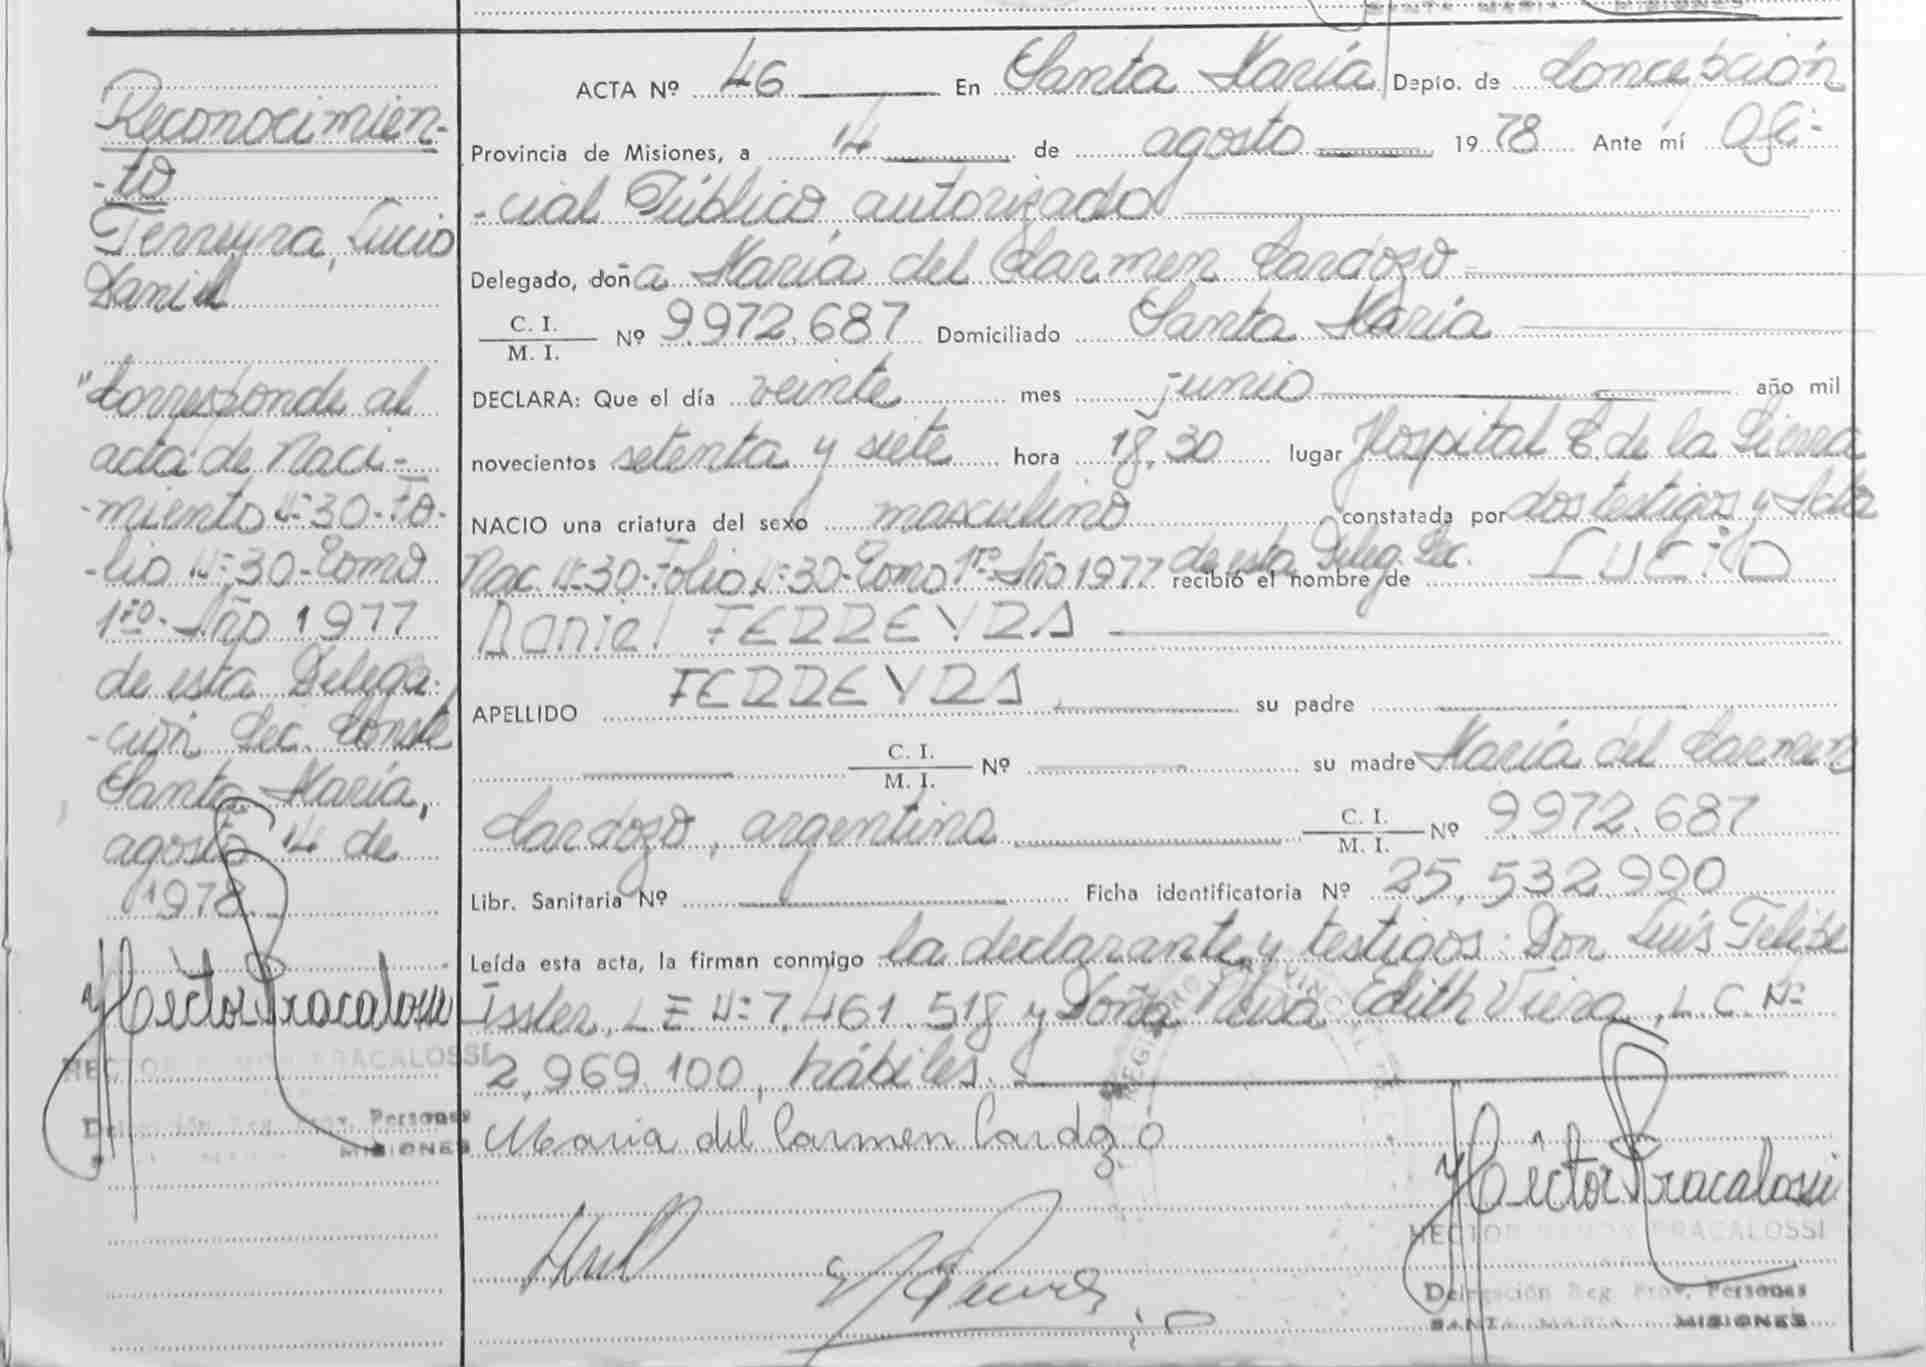 SANTA MARIA MISIONES
Reconocimien-
-to
Ferreyra, Lucio
Daniel
"Corresponde al
acta de Naci-
-miento Nº 30-Fo-
-lio Nº 30-Tomo
1ro- Año 1977
de esta Delega-
-ción Sec. Conste
Santa María,
agosto 14 de
1978.
Hector Pracalossi
HECTOR RAMON PRACALOSSI
Delegación Reg. Prov. Personas
SANTA MARIA MISIONES
ACTA Nº 46 En Santa María Depto. de Concepción
Provincia de Misiones, a 14 de agosto 19 78 Ante mí Ofi-
-cial Público autorizado
Delegado, doña María del Carmen Cardozo
C. I.
M. I. Nº 9.972.687 Domiciliado Santa María
DECLARA: Que el día veinte mes junio año mil
novecientos setenta y siete hora 18,30 lugar Hospital C. de la Sierra
NACIO una criatura del sexo masculino constatada por dos testigos y Acta
Nac. Nº 30-Folio Nº 30-Tomo 1ro-Año 1977 de esta Deleg. Sec. recibió el nombre de LUCIO
Daniel FERREYRA
APELLIDO FERREYRA su padre
C. I.
M. I. Nº su madre María del Carmen
Cardozo, argentina C. I.
M. I. Nº 9.972.687
Libr. Sanitaria Nº Ficha identificatoria Nº 25.532.990
Leída esta acta, la firman conmigo la declarante y testigos: Don Luís Felipe
Issler, L E Nº 7.461.518 y Doña Neusa Edith Vieira, L. C. Nº
2.969.100, hábiles.
Maria del Carmen Cardozo
Hector Pracalossi
HECTOR RAMON PRACALOSSI
Delegación Reg. Prov. Personas
SANTA MARIA MISIONES